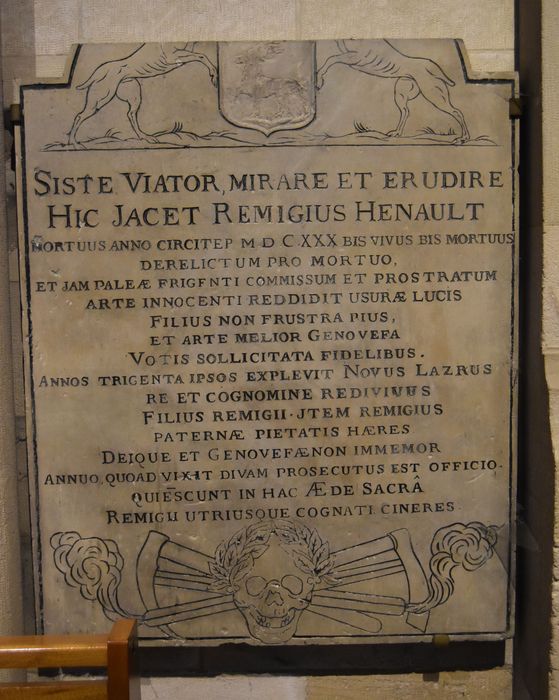 SISTE VIATOR, MIRARE ET ERUDIRE
HIC JACET REMIGIUS HENAULT
MORTUUS ANNO CIRCITEP M D C.XXX BIS VIVUS BIS MORTUUS
DERELICTUM PRO MORTUO,
ET JAM PALEÆ FRIGENTI COMMISSUM ET PROSTRATUM
ARTE INNOCENTI REDDIDIT USURÆ LUCIS
FILIUS NON FRUSTRA PIUS,
ET ARTE MELIOR GENOVEFA
VOTIS SOLLICITATA FIDELIBUS.
ANNOS TRIGENTA IPSOS EXPLEVIT NOVUS LAZRUS
RE ET COGNOMINE REDIVIVUS
FILIUS REMIGII · JTEM REMIGIUS
PATERNÆ PIETATIS HÆRES
DEIQUE ET GENOVEFÆ NON IMMEMOR
ANNUO, QUOAD VIXIT DIVAM PROSECUTUS EST OFFICIO.
QUIESCUNT IN HAC ÆDE SACRÂ
REMIGII UTRIUSQUE COGNATI CINERES.